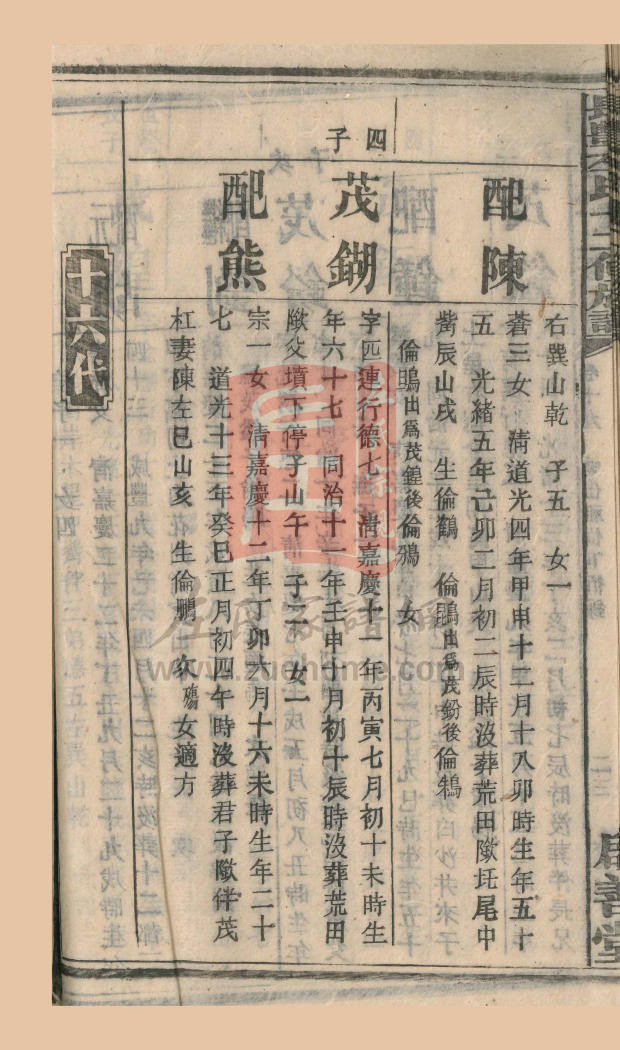 右巽山乾　子五　女一
配陳
蒼三女　清道光四年甲申十二月十八卯時生年五十
五　光緒五年己卯二月初二辰時沒葬荒田墩圫尾中
嘴辰山戌　生倫鶴　倫鵾出爲茂鈖後倫鶈
倫鵾出爲茂鍠後倫鴉　女
四子
茂鍸
字匹連行德七清嘉慶十一年丙寅七月初十未時生
年六十七　同治十一年壬申十月初十辰時沒葬荒田
墩父墳下停子山午　子二　女一
配熊
宗一女　清嘉慶十二年丁卯六月十六未時生年二十
七　道光十三年癸巳正月初四午時沒葬君子墩伴茂
杠妻陳左巳山亥　生倫鵬　次殤女適方
十六代
二三
善堂
左氏家譜網
www.zuohome.com